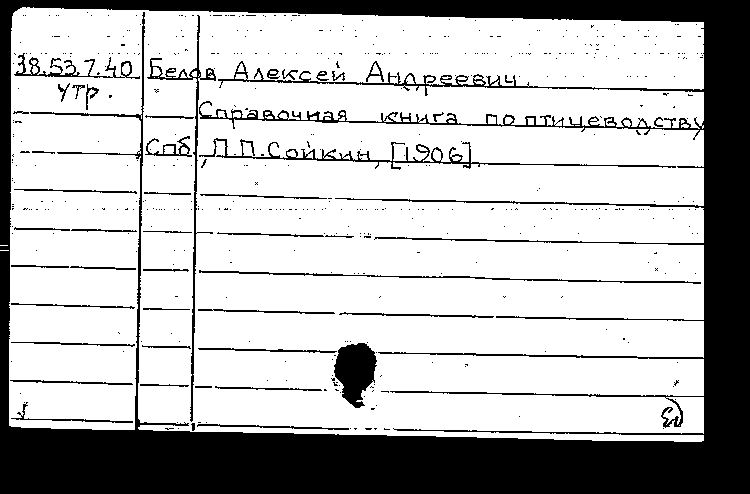 38.53.7.40 Белов, Алексей Андреевич.
утр.
Справочная книга по птицеводству
Спб., П.П.Сойкин, [1906].